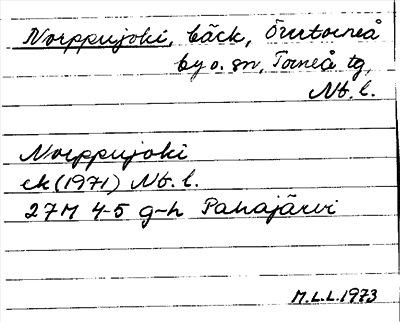 Norppujoki, bäck, Övertorneå
by o. sn, Torneå tg,
Nb. l.
Norppujoki
ek (1971) Nb. l.
27M 4-5 g-h Pahajärvi
M.L.L. 1973